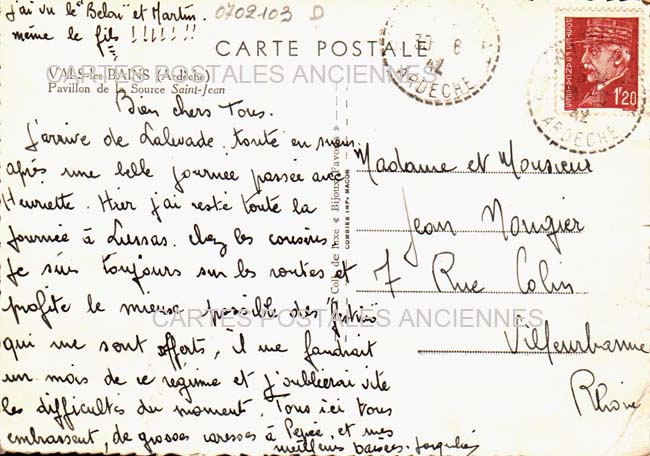 j'ai vu le "Belori" et Martin.
même le fils !!!!!!!
0702103 D
CARTE POSTALE
CARTES POSTALES ANCIENNES
VALS-les-BAINS (Ardèche)
Pavillon de la Source Saint-Jean
30 6
42
ARDECHE
1f20
42
ARDECHE
Bien chers Tous.
J'arrive de Lalevade, toute en sueur
après une belle journée passée avec
Henriette. Hier j'ai resté toute la
journée à Lussas. chez les cousins
Je suis toujours sur les routes et
profite le mieux possible des "festins"
qui me sont offerts, il me faudrait
un mois de ce régime et j'oublierai vite
les difficultés du moment. Tous ici vous
embrassent, de grosses caresses à Pépée, et mes
meilleurs baisers. Jacqueline
Coll. de luxe « Bijoux Favoris »
COMBIER IMPr MACON
Madame et Monsieur
Jean Nougier
7 Rue Colin
CARTES POSTALES ANCIENNES
Villeurbanne
Rhône